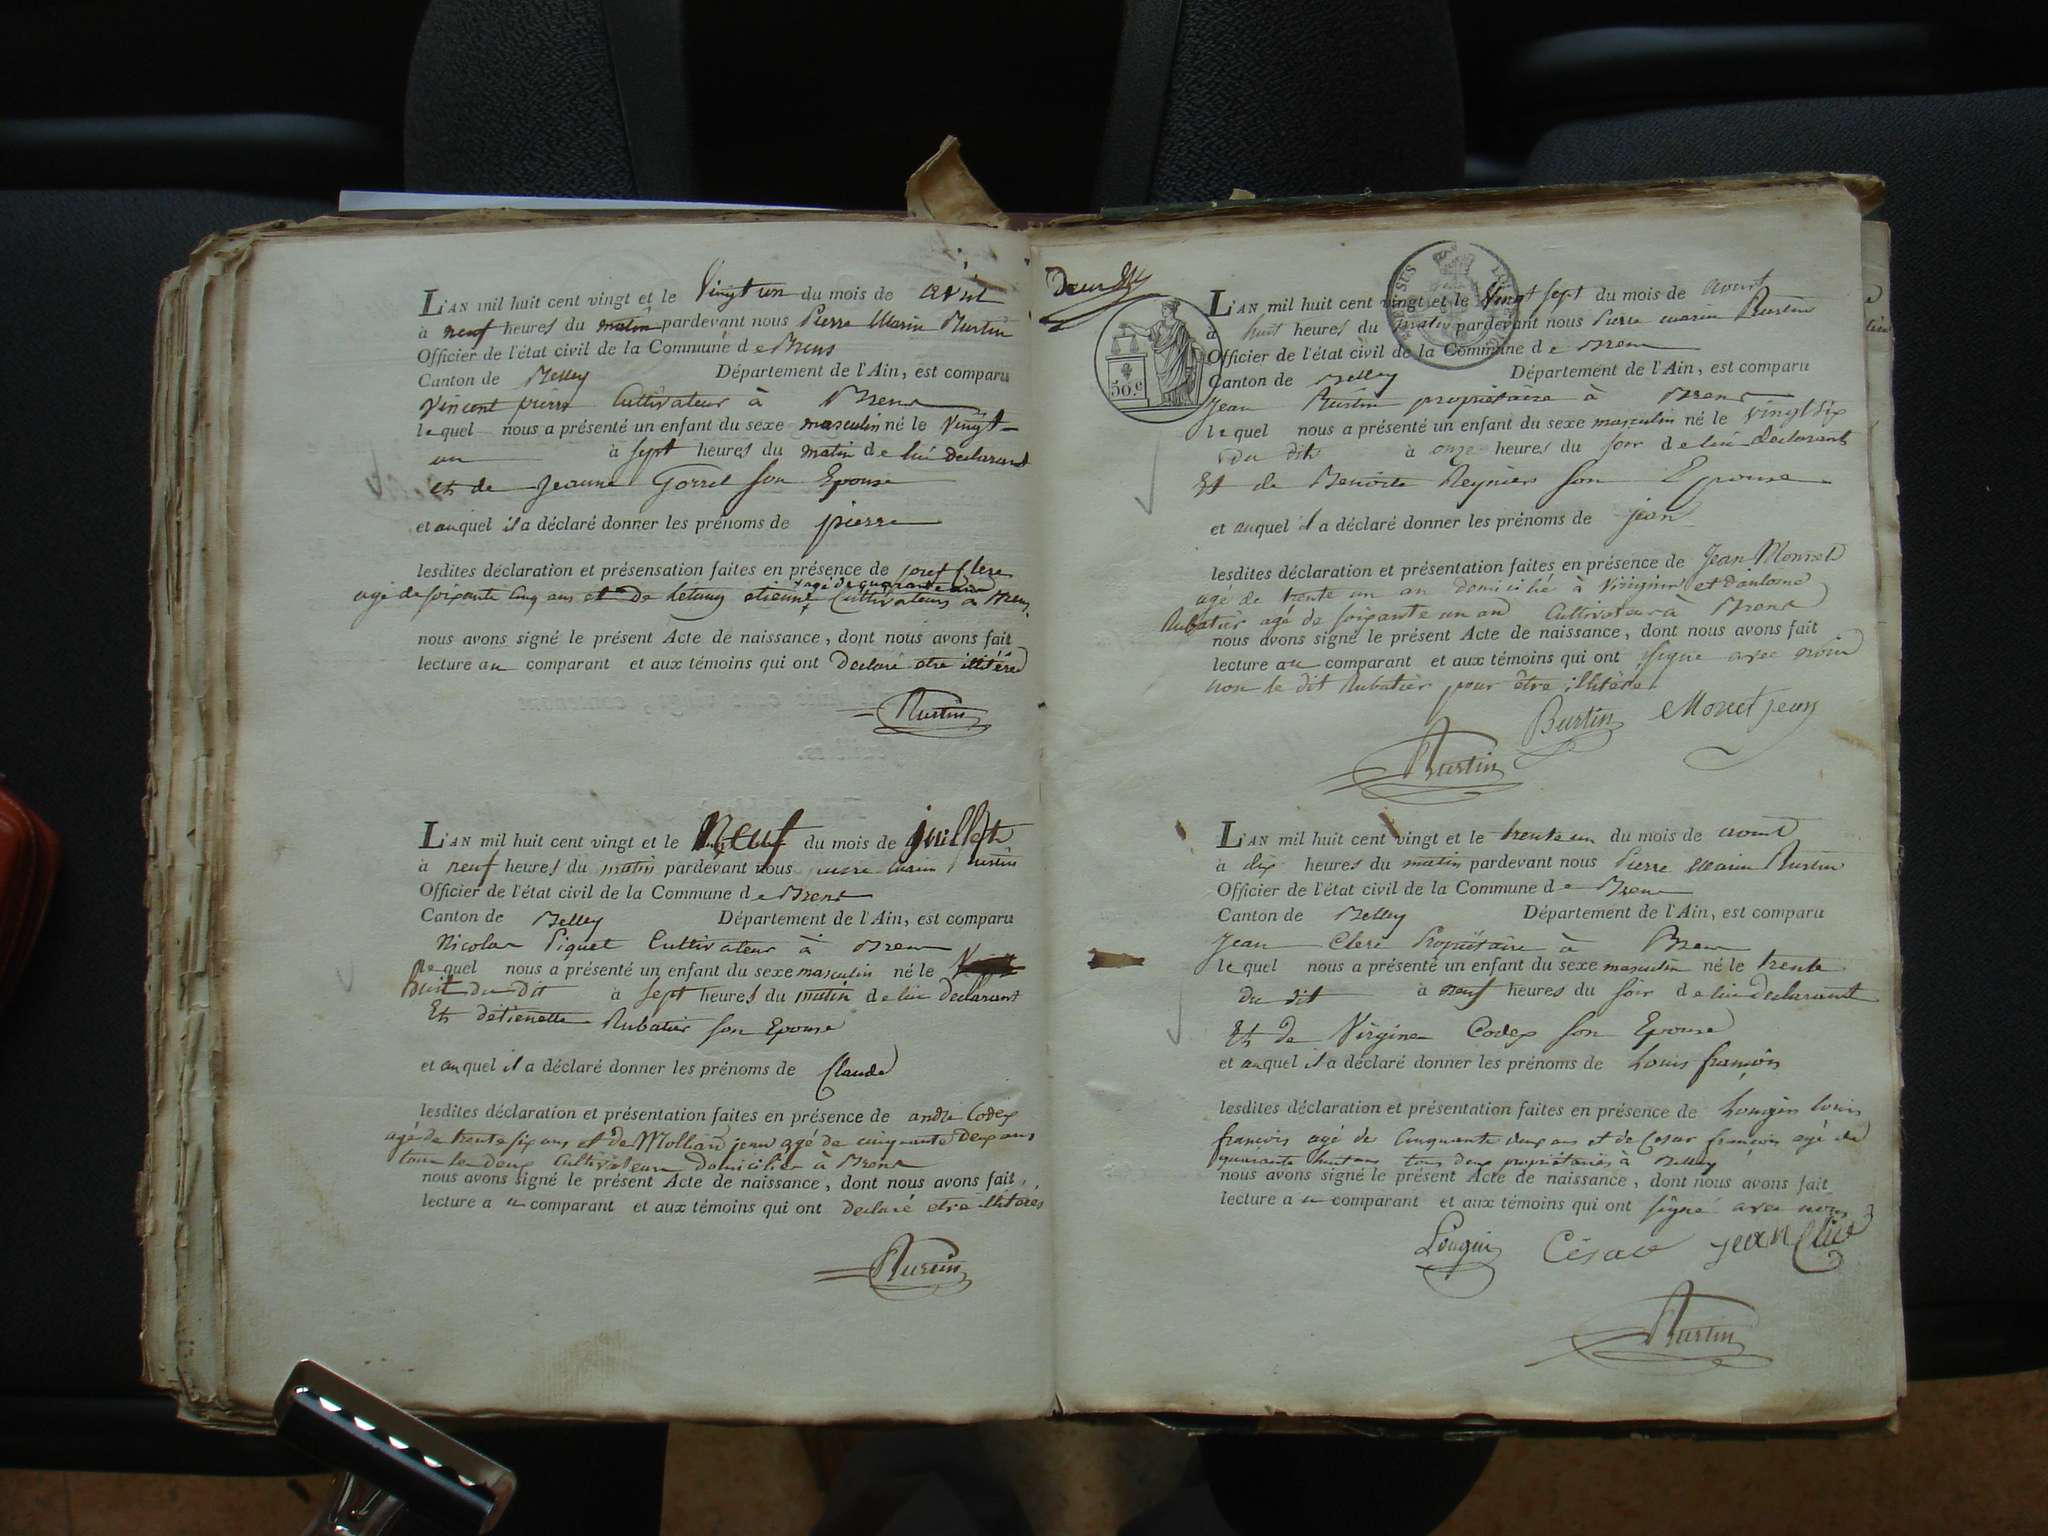 L'AN mil huit cent vingt et le Vingt un du mois de avril
à neuf heures du matin pardevant nous Pierre Marin Burtin
Officier de l'état civil de la Commune de Brens
Canton de Belley Département de l'Ain, est comparu
Vincent pierre Cultivateur à Brens
lequel nous a présenté un enfant du sexe masculin né le Vingt
un à sept heures du matin de lui déclarant
et de Jeanne Gorrel son Epouse
et auquel il a déclaré donner les prénoms de pierre
lesdites déclaration et présensation faites en présence de josef Clerc
agé de soixante cinq ans et de étienne Cultivateurs à Brens
agé de quarante
nous avons signé le présent Acte de naissance, dont nous avons fait
lecture au comparant et aux témoins qui ont declaré etre illitéré
Burtin
L'AN mil huit cent vingt et le Neuf du mois de juillet
à neuf heures du matin pardevant nous pierre marin Burtin
Officier de l'état civil de la Commune de Brens
Canton de Belley Département de l'Ain, est comparu
Nicolas Piquet Cultivateur à Brens
lequel nous a présenté un enfant du sexe masculin né le
huit du dit à sept heures du matin de lui declarant
Et détienette Rubatier son Epouse
et auquel il a déclaré donner les prénoms de Claude
lesdites déclaration et présentation faites en présence de andré Codex
agé de trente six ans et de Mollard jean agé de cinquante deux ans
tous les deux Cultivateurs domicilier à Brens
nous avons signé le présent Acte de naissance, dont nous avons fait
lecture au comparant et aux témoins qui ont declaré etre illitérés
Burtin
50.c
L'AN mil huit cent vingt et le Vingt sept du mois de avout
à huit heures du matin pardevant nous Pierre marin Burtin
Officier de l'état civil de la Commune de Brens
Canton de Belley Département de l'Ain, est comparu
Jean Burtin propriétaire à Brens
lequel nous a présenté un enfant du sexe masculin né le vingt six
du dit à onze heures du soir de lui declarant
Et de Benoite Reynier son Epouse
et auquel il a déclaré donner les prénoms de jean
lesdites déclaration et présentation faites en présence de Jean Monet
agé de trente un an domicilié à Virignin et dantoine
Rubatier agé de soixante un an Cultivateur à Brens
nous avons signé le présent Acte de naissance, dont nous avons fait
lecture au comparant et aux témoins qui ont signé avec nous
non le dit Rubatier pour être illitéré
Burtin Monet jean
Burtin
L'AN mil huit cent vingt et le trente un du mois de avout
à dix heures du matin pardevant nous Pierre Marin Burtin
Officier de l'état civil de la Commune de Brens
Canton de Belley Département de l'Ain, est comparu
Jean Clerc Propriétaire à Brens
lequel nous a présenté un enfant du sexe masculin né le trente
du dit à neuf heures du soir de lui declarant
Et de Virgine Codex son Epouse
et auquel il a déclaré donner les prénoms de Louis françois
lesdites déclaration et présentation faites en présence de Lougin louis
françois agé de Cinquante deux ans et de Cesar françois agé de
quarante huit ans tous deux propriétaires à Belley
nous avons signé le présent Acte de naissance, dont nous avons fait
lecture au comparant et aux témoins qui ont signé avec nous
Lougin César jean Clerc
Burtin